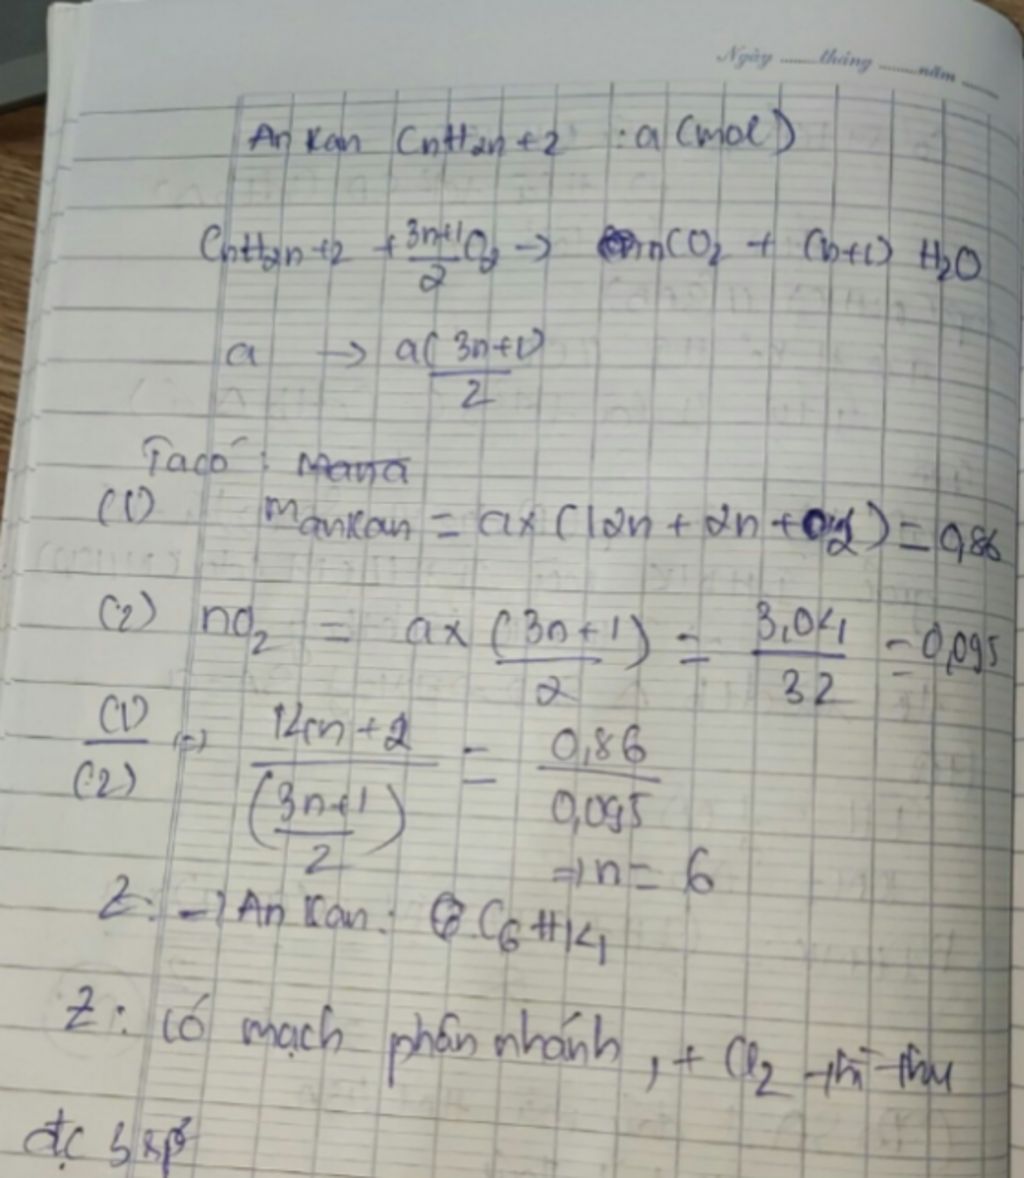 Ngày ........tháng ........năm ......
Ankan CnH2n+2 : a (mol)
CnH2n+2 + 3n+1/2 O2 → nCO2 + (n+1) H2O
a → a(3n+1)/2
Ta có :
(1) mankan = a x (12n + 2n + 2) = 0,86
(2) nO2 = a x (3n+1)/2 = 3,04/32 = 0,095
(1)/(2) => 14n + 2/(3n+1/2) = 0,86/0,095
=> n = 6
Z: → Ankan: C6H14
Z: có mạch phân nhánh, + Cl2 thì thu
đc 3 sp